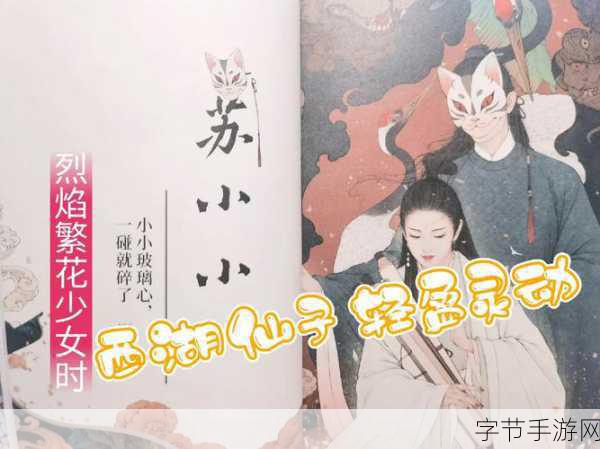 苏小小
小小玻璃心，
一碰就碎了
烈焰繁花少女时
西湖仙子 轻盈灵动
字节手游网